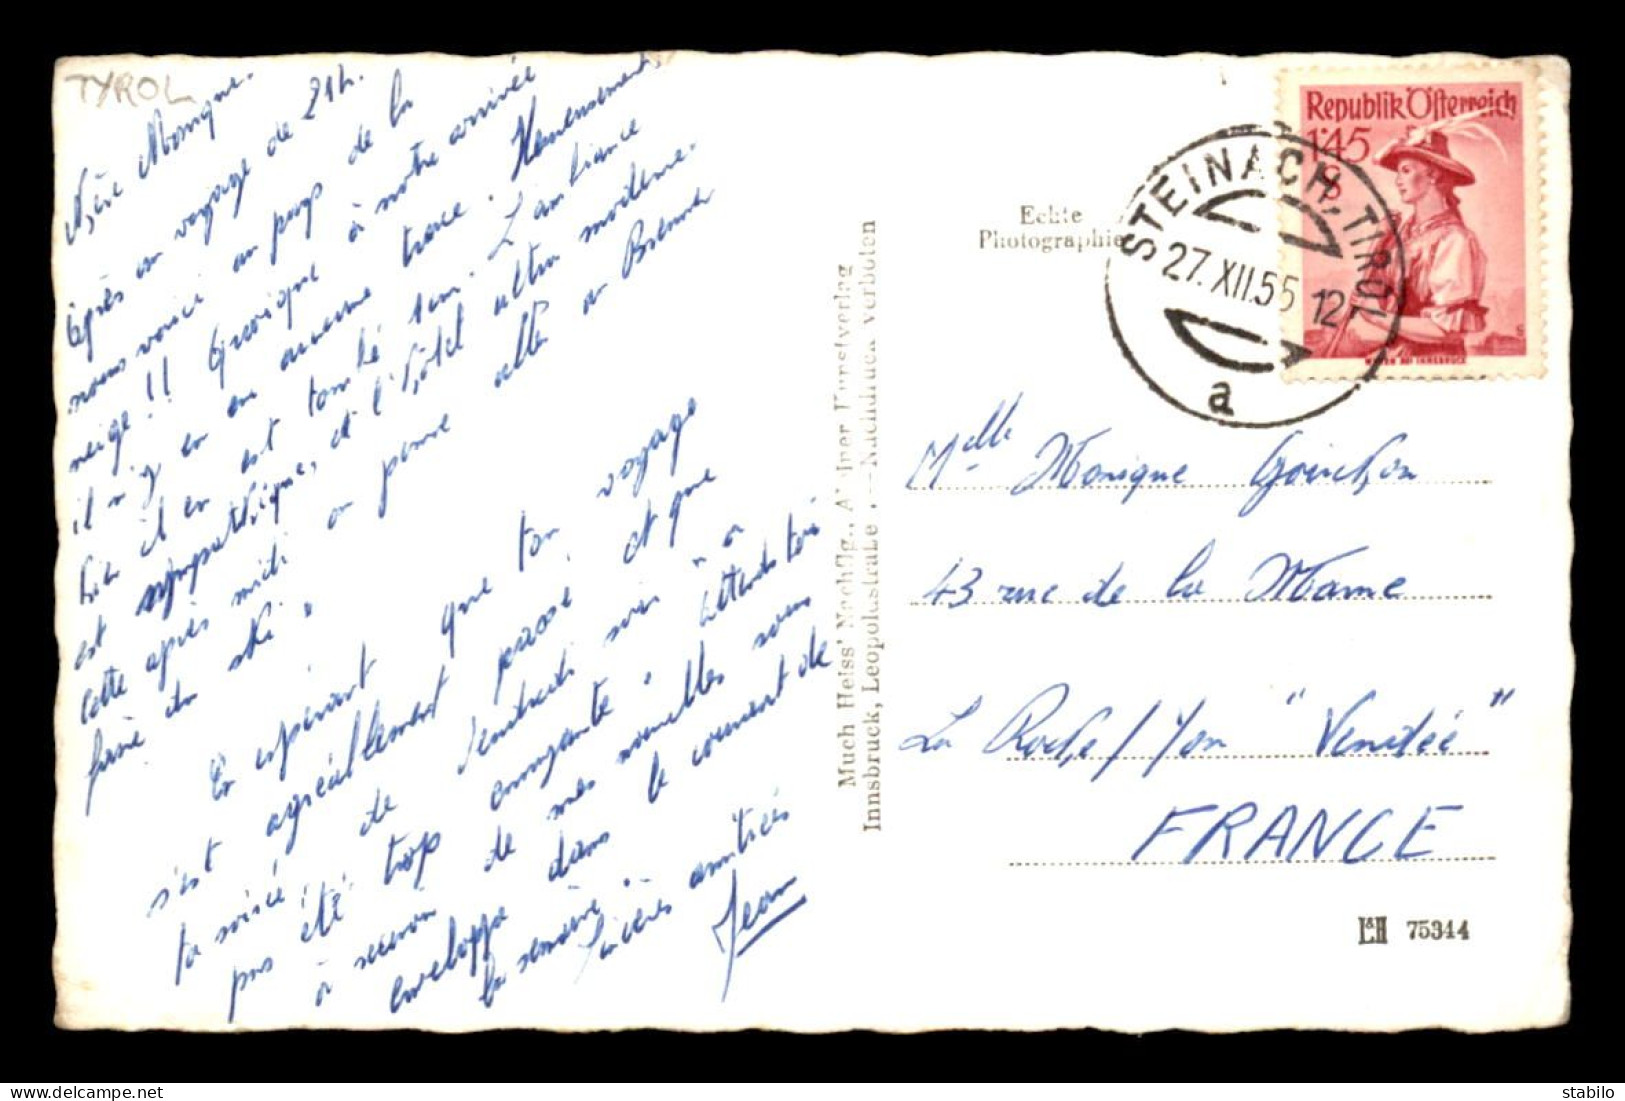 TYROL
Chère Monique.
Après un voyage de 21h.
nous voici au pays de la
neige !! Quoique à notre arrivée
il n'y en aucune trace. Heureusement
hier il en est tombé 5cm. L'ambiance
est sympathique, et l'hôtel ultra moderne.
Cette après midi on pense aller au Brenner
faire du ski.
En espérant que ton voyage
s'est agréablement passé, et que
ta soirée, de vendredi soir n'a
pas été trop emoyante. Attends toi
à recevoir de mes nouvelles sous
enveloppe dans le courant de
la semaine.
Sincères amitiés
Jean
Much Heiss' Nachflg., Alpiner Kunstverlag
Innsbruck, Leopoldstraße .—Nachdruck verboten
Echte
Photographie
Republik Österreich
1'45
S
STEINACH, TIROL
27.XII.55 12
a
Melle Monique
43 rue de la Marne
La Roche / Yon "Vendée"
FRANCE
75344
stabilo